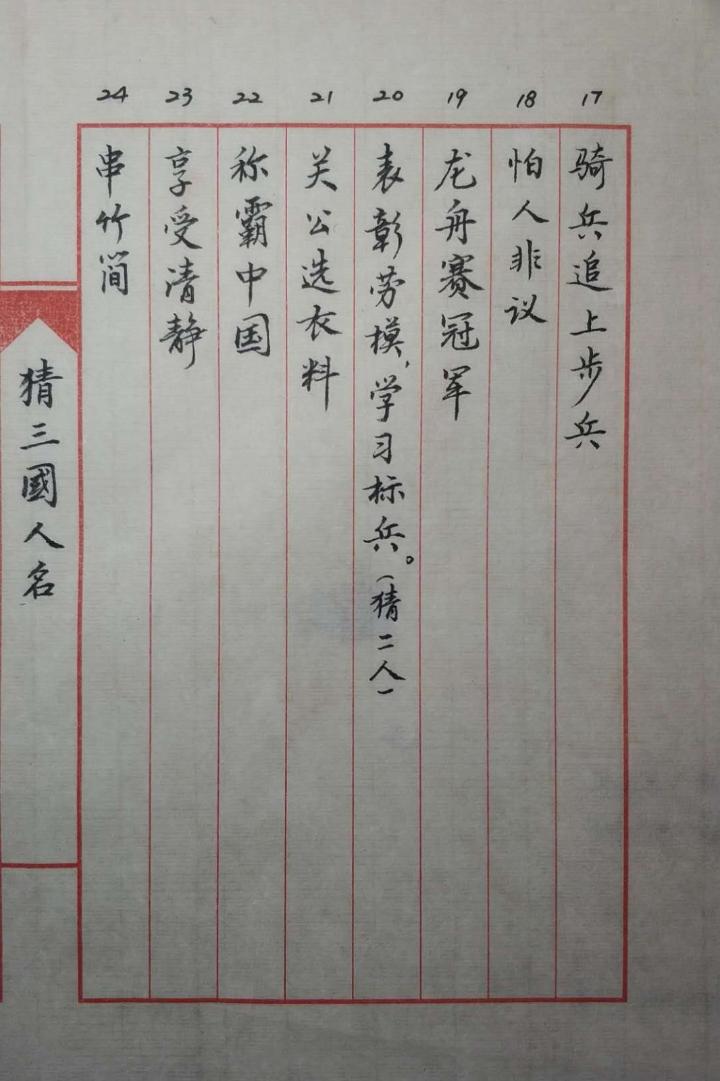 17 骑兵追上步兵
18 怕人非议
19 龙舟赛冠军
20 表彰劳模，学习标兵。（猜二人）
21 关公选衣料
22 称霸中国
23 享受清静
24 串竹简
猜三國人名